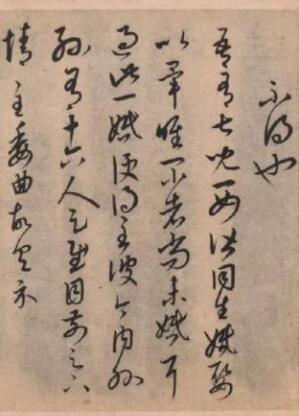 不得也
吾有七兒一女皆同生婚娶
以畢唯一小者尚未婚耳
過此一婚便得至彼今内外
孫有十六人足慰目前足下
情至委曲故具示